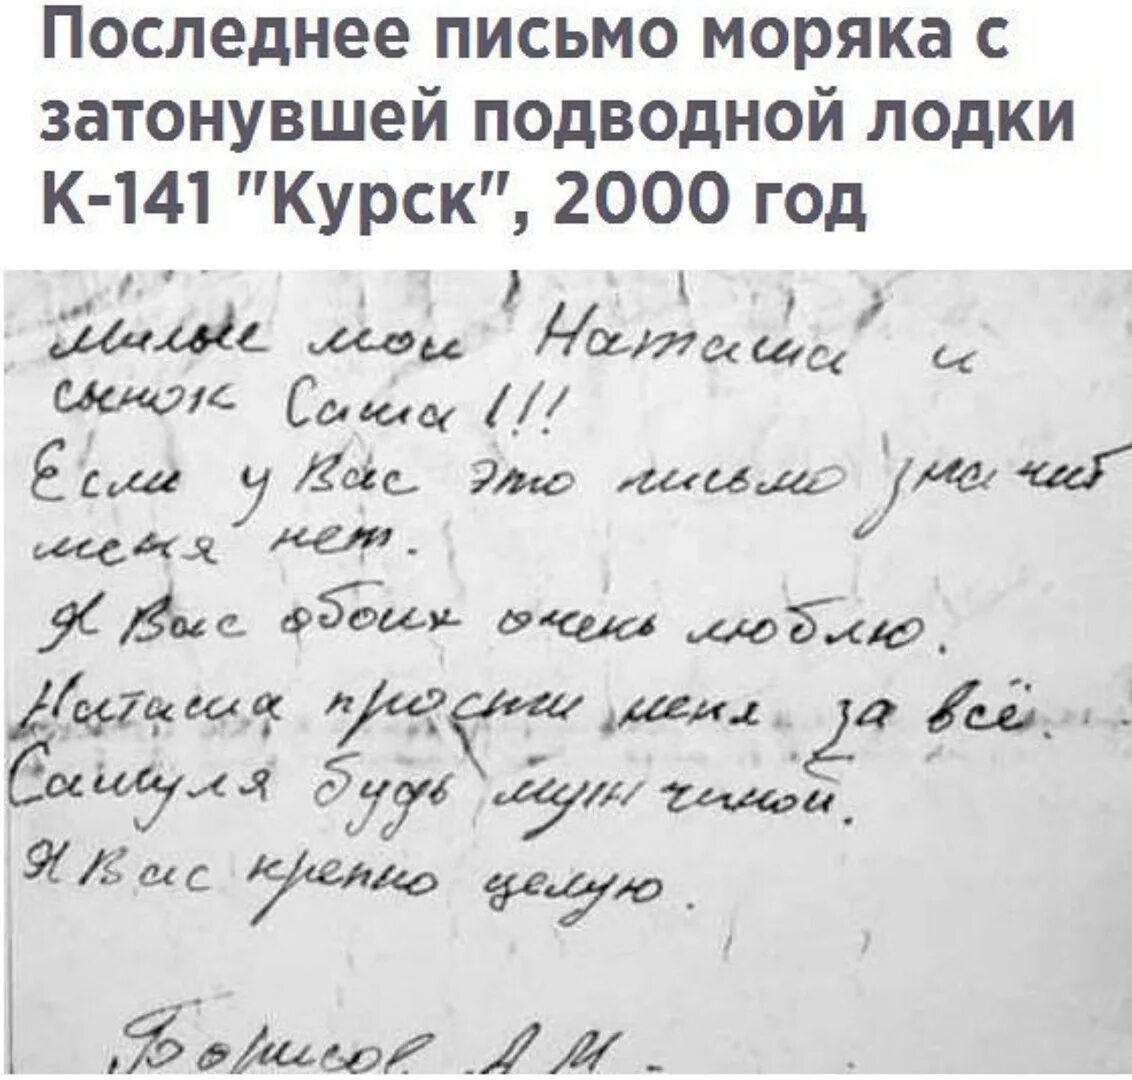 Последнее письмо моряка с
затонувшей подводной лодки
К-141 "Курск", 2000 год
Милые мои Наташа и
сынок Саша!!!
Если у Вас это письмо значит
меня нет.
Я Вас обоих очень люблю.
Наташа прости меня за всё.
Сашуля будь мужчиной.
Я Вас крепко целую.
Борисов А М.